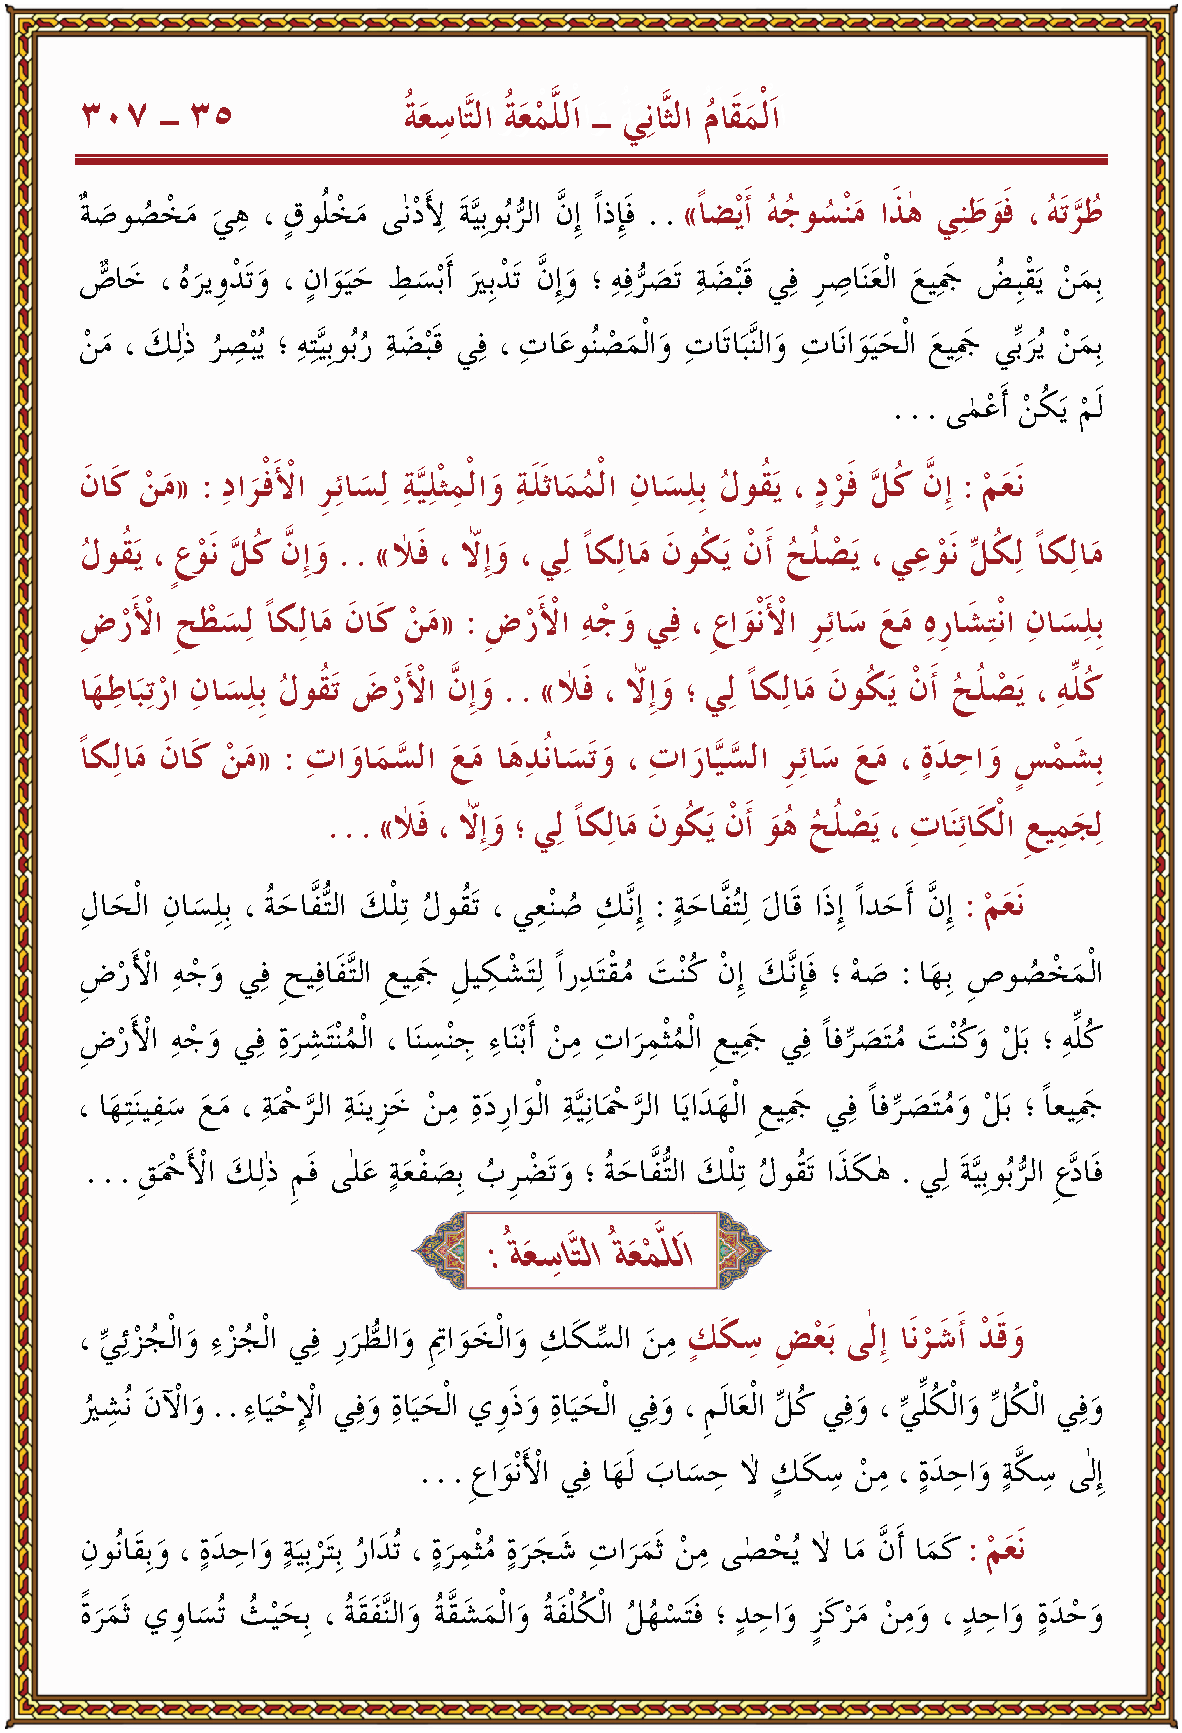 اَلْمَقَامُ الثَّانِي ــ اَللَّمْعَةُ التَّاسِعَةُ ٣٥ ــ ٣٠٧
طُرَّتُهُ ، فَوَطَنِي هٰذَا مَنْسُوجُهُ أَيْضاً» . . فَإِذاً إِنَّ الرُّبُوبِيَّةَ لِأَدْنٰى مَخْلُوقٍ ، هِيَ مَخْصُوصَةٌ
بِمَنْ يَقْبِضُ جَمِيعَ الْعَنَاصِرِ فِي قَبْضَةِ تَصَرُّفِهِ ؛ وَإِنَّ تَدْبِيرَ أَبْسَطِ حَيَوَانٍ ، وَتَدْوِيرَهُ ، خَاصٌّ
بِمَنْ يُرَبِّي جَمِيعَ الْحَيَوَانَاتِ وَالنَّبَاتَاتِ وَالْمَصْنُوعَاتِ ، فِي قَبْضَةِ رُبُوبِيَّتِهِ ؛ يُبْصِرُ ذٰلِكَ ، مَنْ
لَمْ يَكُنْ أَعْمٰى . . .
نَعَمْ : إِنَّ كُلَّ فَرْدٍ ، يَقُولُ بِلِسَانِ الْمُمَاثَلَةِ وَالْمِثْلِيَّةِ لِسَائِرِ الْأَفْرَادِ : «مَنْ كَانَ
مَالِكاً لِكُلِّ نَوْعِي ، يَصْلُحُ أَنْ يَكُونَ مَالِكاً لِي ، وَإِلاَّ ، فَلاٰ» . . وَإِنَّ كُلَّ نَوْعٍ ، يَقُولُ
بِلِسَانِ انْتِشَارِهِ مَعَ سَائِرِ الْأَنْوَاعِ ، فِي وَجْهِ الْأَرْضِ : «مَنْ كَانَ مَالِكاً لِسَطْحِ الْأَرْضِ
كُلِّهِ ، يَصْلُحُ أَنْ يَكُونَ مَالِكاً لِي ؛ وَإِلاَّ ، فَلاٰ» . . وَإِنَّ الْأَرْضَ تَقُولُ بِلِسَانِ ارْتِبَاطِهَا
بِشَمْسٍ وَاحِدَةٍ ، مَعَ سَائِرِ السَّيَّارَاتِ ، وَتَسَانُدِهَا مَعَ السَّمَاوَاتِ : «مَنْ كَانَ مَالِكاً
لِجَمِيعِ الْكَائِنَاتِ ، يَصْلُحُ هُوَ أَنْ يَكُونَ مَالِكاً لِي ؛ وَإِلاَّ ، فَلاٰ» . . .
نَعَمْ : إِنَّ أَحَداً إِذَا قَالَ لِتُفَّاحَةٍ : إِنَّكِ صُنْعِي ، تَقُولُ تِلْكَ التُّفَّاحَةُ ، بِلِسَانِ الْحَالِ
الْمَخْصُوصِ بِهَا : صَهْ ؛ فَإِنَّكَ إِنْ كُنْتَ مُقْتَدِراً لِتَشْكِيلِ جَمِيعِ التَّفَافِيحِ فِي وَجْهِ الْأَرْضِ
كُلِّهِ ؛ بَلْ وَكُنْتَ مُتَصَرِّفاً فِي جَمِيعِ الْمُثْمِرَاتِ مِنْ أَبْنَاءِ جِنْسِنَا ، الْمُنْتَشِرَةِ فِي وَجْهِ الْأَرْضِ
جَمِيعاً ؛ بَلْ وَمُتَصَرِّفاً فِي جَمِيعِ الْهَدَايَا الرَّحْمَانِيَّةِ الْوَارِدَةِ مِنْ خَزِينَةِ الرَّحْمَةِ ، مَعَ سَفِينَتِهَا ،
فَادَّعِ الرُّبُوبِيَّةَ لِي . هٰكَذَا تَقُولُ تِلْكَ التُّفَّاحَةُ ؛ وَتَضْرِبُ بِصَفْعَةٍ عَلٰى فَمِ ذٰلِكَ الْأَحْمَقِ . . .
اَللَّمْعَةُ التَّاسِعَةُ :
وَقَدْ أَشَرْنَا إِلٰى بَعْضِ سِكَكٍ مِنَ السِّكَكِ وَالْخَوَاتِمِ وَالطُّرَرِ فِي الْجُزْءِ وَالْجُزْئِيِّ ،
وَفِي الْكُلِّ وَالْكُلِّيِّ ، وَفِي كُلِّ الْعَالَمِ ، وَفِي الْحَيَاةِ وَذَوِي الْحَيَاةِ وَفِي الْإِحْيَاءِ . . وَالْآنَ نُشِيرُ
إِلٰى سِكَّةٍ وَاحِدَةٍ ، مِنْ سِكَكٍ لاٰ حِسَابَ لَهَا فِي الْأَنْوَاعِ . . .
نَعَمْ : كَمَا أَنَّ مَا لاٰ يُحْصٰى مِنْ ثَمَرَاتِ شَجَرَةٍ مُثْمِرَةٍ ، تُدَارُ بِتَرْبِيَةٍ وَاحِدَةٍ ، وَبِقَانُونِ
وَحْدَةٍ وَاحِدٍ ، وَمِنْ مَرْكَزٍ وَاحِدٍ ؛ فَتَسْهُلُ الْكُلْفَةُ وَالْمَشَقَّةُ وَالنَّفَقَةُ ، بِحَيْثُ تُسَاوِي ثَمَرَةً